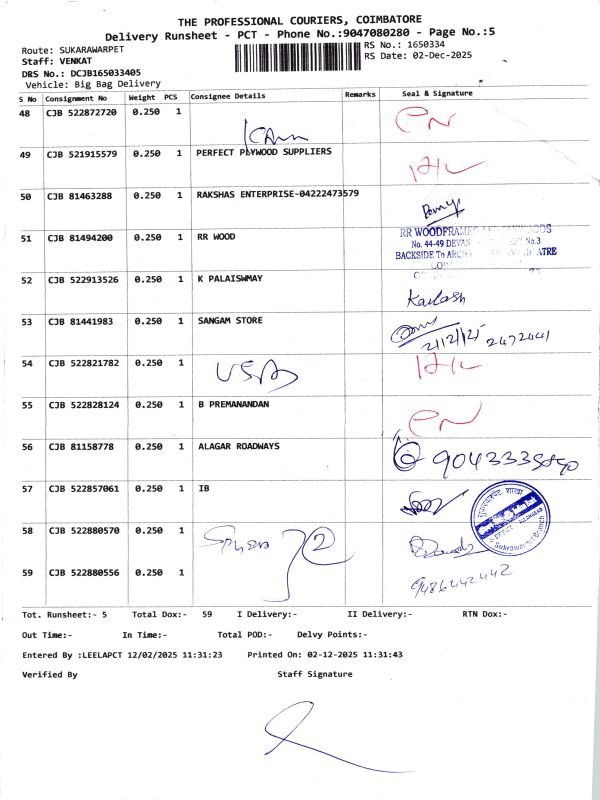 THE PROFESSIONAL COURIERS, COIMBATORE
Delivery Runsheet - PCT - Phone No.:9047080280 - Page No.:5
Route: SUKARAWARPET
RS No.: 1650334
Staff: VENKAT
RS Date: 02-Dec-2025
DRS No.: DCJB165033405
Vehicle: Big Bag Delivery
S No Consignment No Weight PCS Consignee Details Remarks Seal & Signature
48 CJB 522872720 0.250 1
49 CJB 521915579 0.250 1 PERFECT PLYWOOD SUPPLIERS
50 CJB 81463288 0.250 1 RAKSHAS ENTERPRISE-04222473579
51 CJB 81494200 0.250 1 RR WOOD
RR WOODFRAMES
No. 44-49 DEVAN No.3
BACKSIDE To
52 CJB 522913526 0.250 1 K PALAISWMAY
Kailash
53 CJB 81441983 0.250 1 SANGAM STORE
2/12/25 2472441
54 CJB 522821782 0.250 1
55 CJB 522828124 0.250 1 B PREMANANDAN
56 CJB 81158778 0.250 1 ALAGAR ROADWAYS
57 CJB 522857061 0.250 1 IB
शाखा
Sukrawarpet Branch
58 CJB 522880570 0.250 1
59 CJB 522880556 0.250 1
9486442442
Tot. Runsheet:- 5 Total Dox:- 59 I Delivery:- II Delivery:- RTN Dox:-
Out Time:- In Time:- Total POD:- Delvy Points:-
Entered By :LEELAPCT 12/02/2025 11:31:23 Printed On: 02-12-2025 11:31:43
Verified By Staff Signature